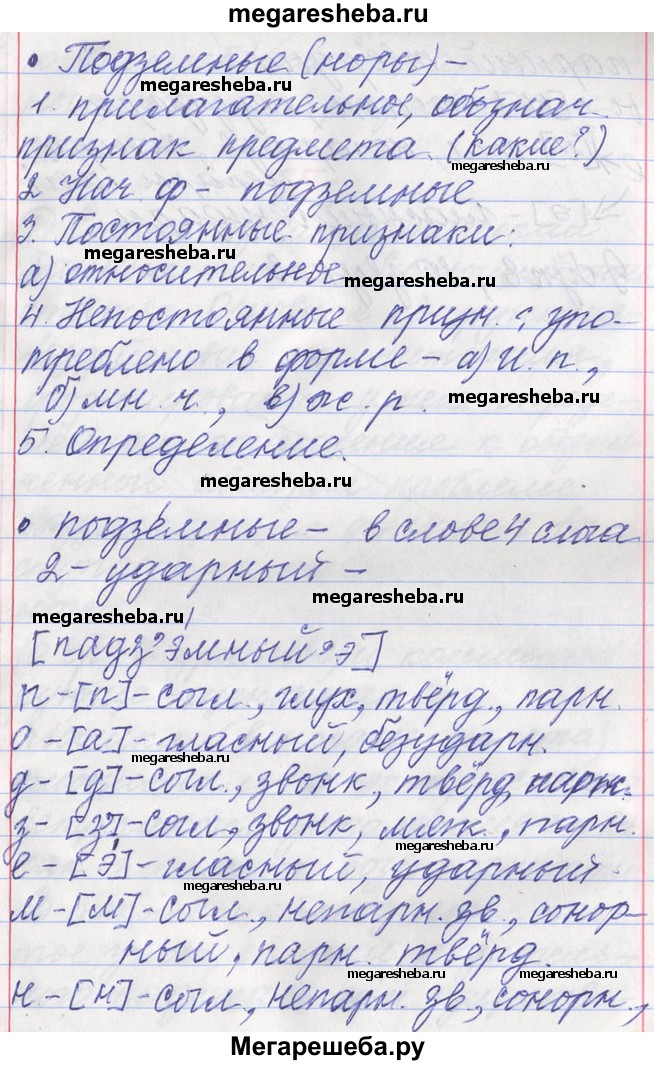 megaresheba.ru
megaresheba.ru
• Подземные (норы) –
megaresheba.ru
1. прилагательное, обознач.
признак предмета. (какие?)
megaresheba.ru
2 Нач. ф – подземные.
3. Постоянные признаки:
megaresheba.ru
а) относительное
megaresheba.ru
4. Непостоянные призн.: упо-
треблено в форме – а) и. п.,
б) мн. ч., в) ж. р.
megaresheba.ru
5. Определение.
megaresheba.ru
• подзе́мные – в слове 4 слога
2 – ударный –
megaresheba.ru
megaresheba.ru
[падз'э́мный'э]
п – [п] – согл., глух, твёрд., парн.
о – [а] – гласный, безударн.
megaresheba.ru
д – [д] – согл., звонк., твёрд, парн.
з – [з'] – согл, звонк, мяж., парн.
megaresheba.ru
е – [э́] – гласный, ударный.
megaresheba.ru
м – [м] – согл., непарн. зв., сонор-
ный, парн. твёрд.
megaresheba.ru
megaresheba.ru
н – [н] – согл, непарн. зв., сонорн.,
megaresheba.ru
Мегарешеба.ру